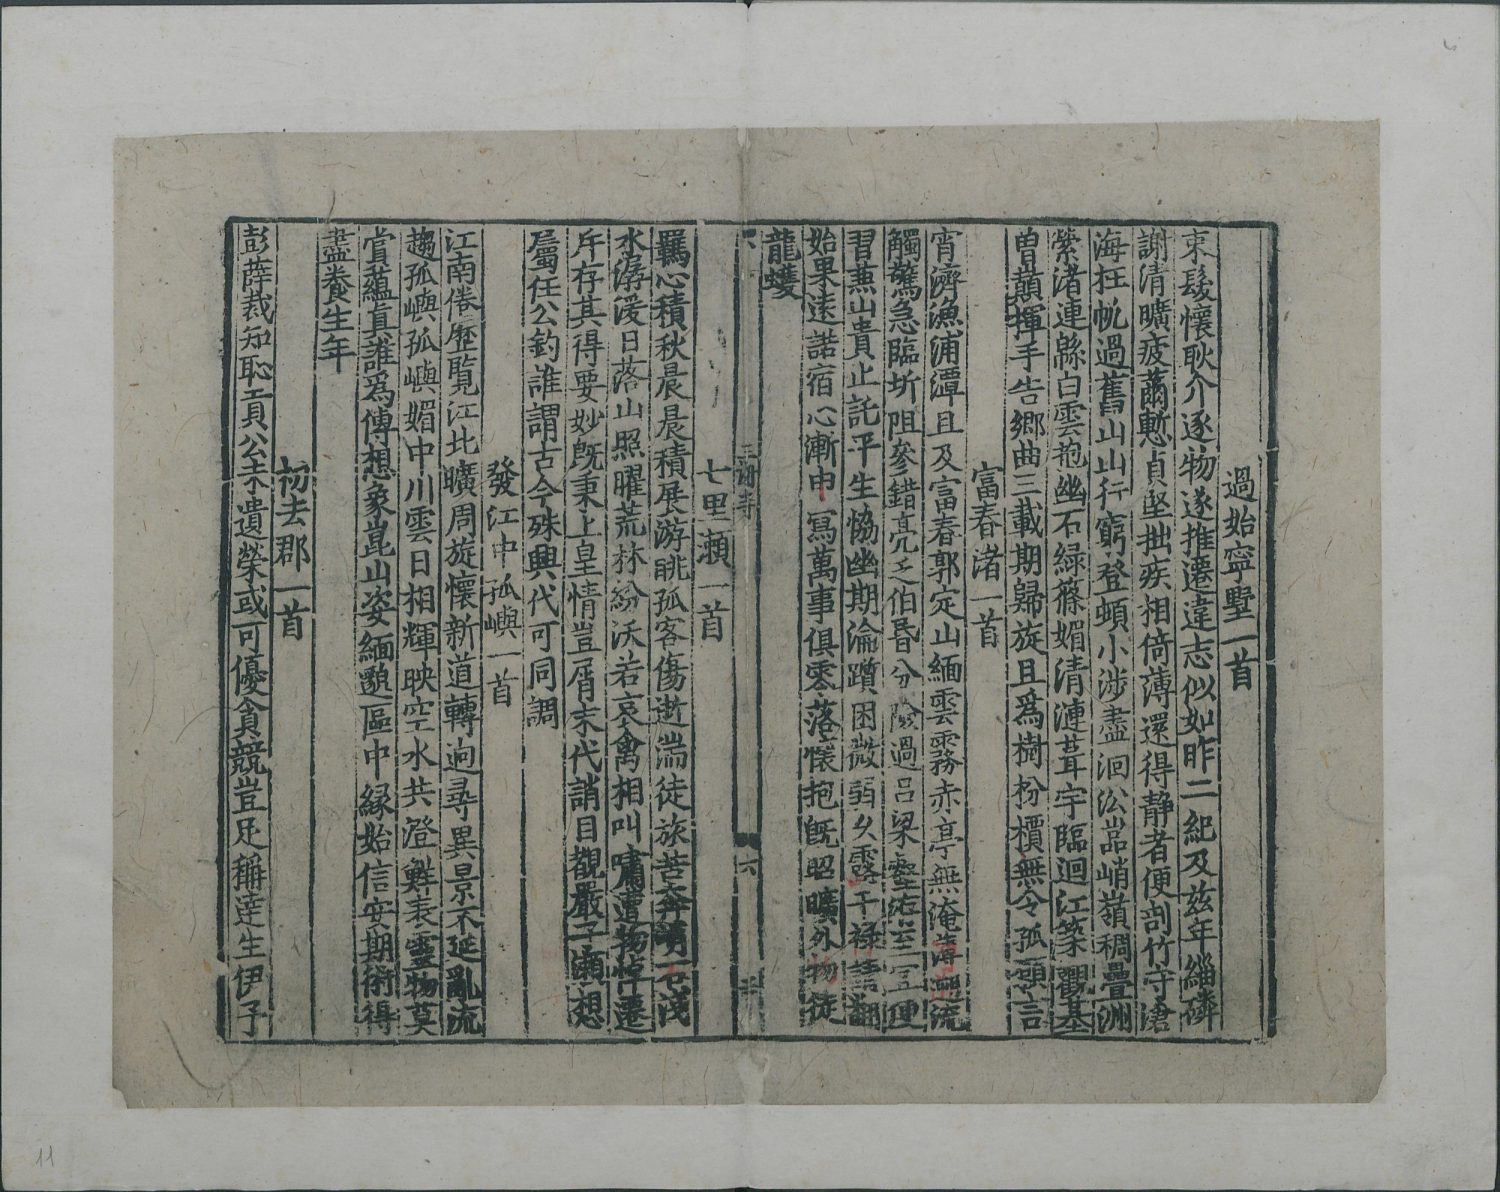 過始寧墅一首
束髮懷耿介逐物遂推遷違志似如昨二紀及茲年緇磷
謝清曠疲薾慙貞堅拙疾相倚薄還得靜者便剖竹守滄
海枉帆過舊山山行窮登頓水涉盡洄㳂巖峭嶺稠疊洲
縈渚連緜白雲抱幽石綠篠媚清漣葺宇臨迴江築觀基
曾巔揮手告鄉曲三載期歸旋且爲樹枌檟無令孤願言
富春渚一首
宵濟漁浦潭旦及富春郭定山緬雲霧赤亭無淹薄遡流
觸驚急臨圻阻參錯亮乏伯昏分險過呂梁壑洊至宜便
習兼山貴止託平生協幽期淪躓困微弱久露干祿請翻
始果遠諾宿心漸申寫萬事俱零落懷抱旣昭曠外物徒
龍蠖
六
七里瀨一首
羈心積秋晨晨積展游眺孤客傷逝湍徒旅苦奔峭石淺
水潺湲日落山照曜荒林紛沃若哀禽相叫嘯遭物悼遷
斥存其得要妙旣秉上皇情豈屑末代誚目覩嚴子瀨想
屬任公釣誰謂古今殊異代可同調
發江中孤嶼一首
江南倦歷覽江北曠周旋懷新道轉迥尋異景不延亂流
趨孤嶼孤嶼媚中川雲日相輝映空水共澄鮮表靈物莫
賞蘊真誰爲傳想象崑山姿緬邈區中緣始信安期術得
盡養生年
初去郡一首
彭薛裁知恥貢公未遺榮或可優貪競豈足稱達生伊予